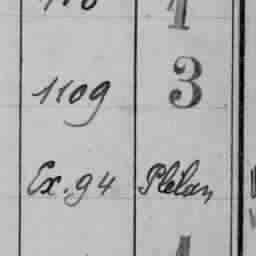 1109 3
Ex. 94 Plélan